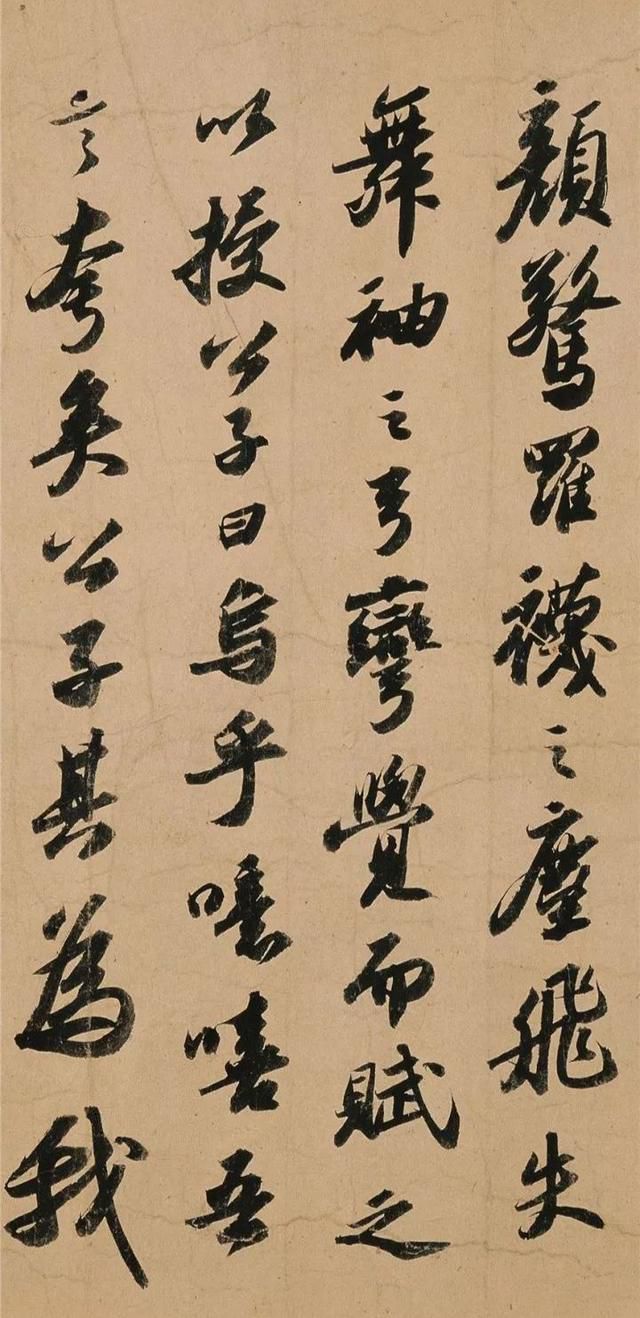 顏驚羅襪之塵飛失
舞袖之弓彎覺而賦之
以授公子曰烏乎噫嘻吾
言夸矣公子其為我